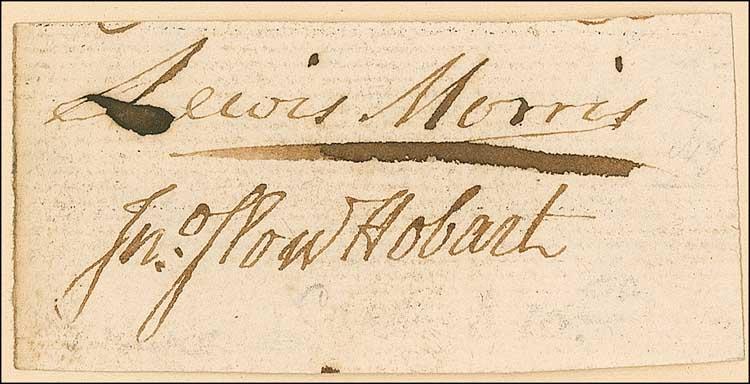 Lewis Morris
Jno. Sloss Hobart